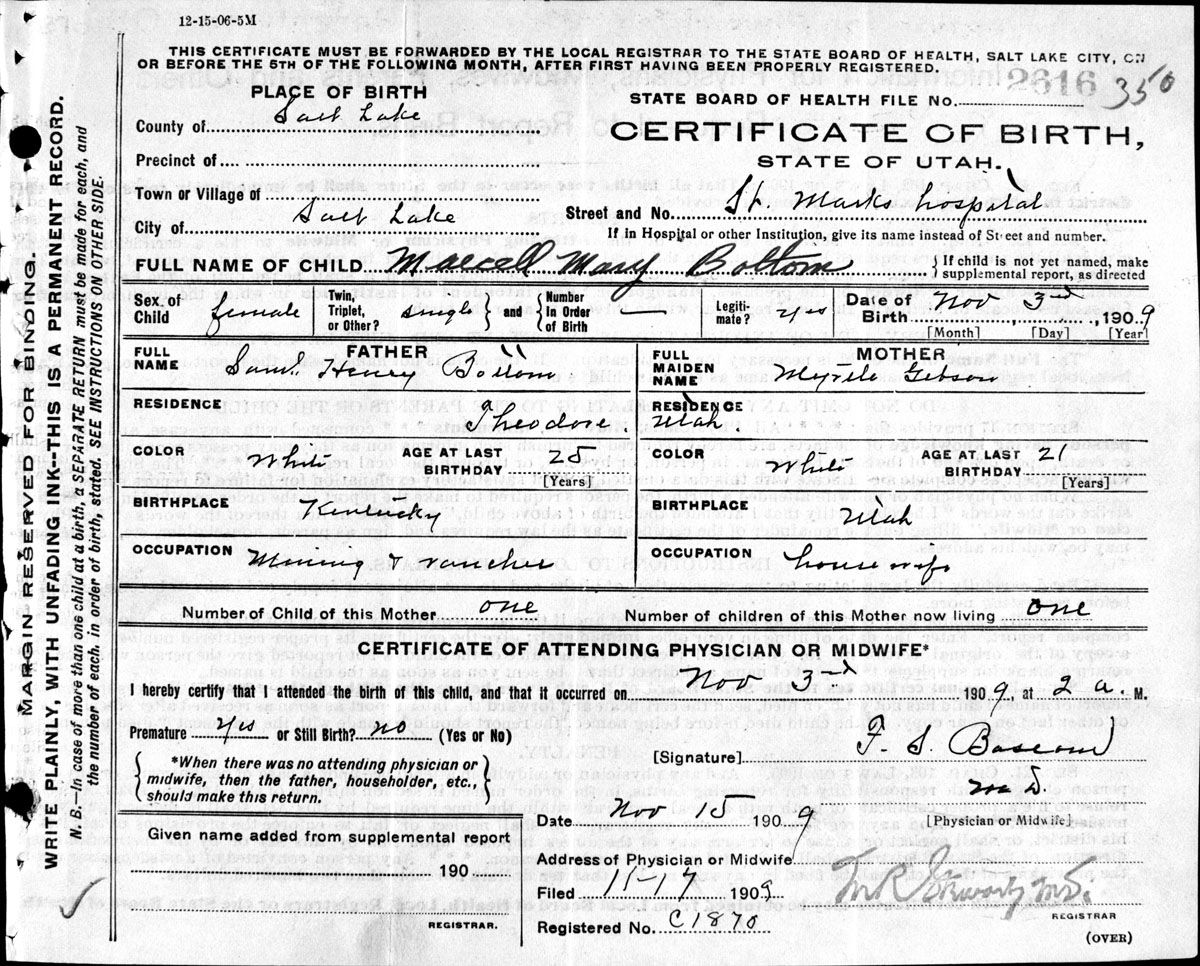 12-15-06-5M
THIS CERTIFICATE MUST BE FORWARDED BY THE LOCAL REGISTRAR TO THE STATE BOARD OF HEALTH, SALT LAKE CITY, ON
OR BEFORE THE 5TH OF THE FOLLOWING MONTH, AFTER FIRST HAVING BEEN PROPERLY REGISTERED.
2616 350
PLACE OF BIRTH
STATE BOARD OF HEALTH FILE No.
County of Salt Lake
CERTIFICATE OF BIRTH,
Precinct of
STATE OF UTAH.
Town or Village of
Street and No. St. Marks hospital
City of Salt Lake
If in Hospital or other Institution, give its name instead of Street and number.
FULL NAME OF CHILD Marcell Mary Bottom
If child is not yet named, make
supplemental report, as directed
Sex of Child female
Twin, Triplet, or Other? single
and Number In Order of Birth —
Legiti-mate? yes
Date of Birth Nov 3rd, 1909
[Month] [Day] [Year]
FATHER
FULL NAME Saml. Henry Bottom
MOTHER
FULL MAIDEN NAME Myrtle Gibson
RESIDENCE Theodore
RESIDENCE Utah
COLOR White
AGE AT LAST BIRTHDAY 25
[Years]
COLOR White
AGE AT LAST BIRTHDAY 21
[Years]
BIRTHPLACE Kentucky
BIRTHPLACE Utah
OCCUPATION Mining & rancher
OCCUPATION house wife
Number of Child of this Mother one
Number of children of this Mother now living one
CERTIFICATE OF ATTENDING PHYSICIAN OR MIDWIFE*
I hereby certify that I attended the birth of this child, and that it occurred on Nov 3rd 1909, at 2 a. M.
Premature yes or Still Birth? no (Yes or No)
[Signature] F. S. Bascom
M D.
[Physician or Midwife]
*When there was no attending physician or
midwife, then the father, householder, etc.,
should make this return.
Date Nov 15 1909
Given name added from supplemental report
190
REGISTRAR.
Address of Physician or Midwife
Filed 11-17 1909
REGISTRAR
Registered No. C1870
(OVER)
MARGIN RESERVED FOR BINDING.
WRITE PLAINLY, WITH UNFADING INK--THIS IS A PERMANENT RECORD.
N. B.—In case of more than one child at a birth, a SEPARATE RETURN must be made for each, and
the number of each, in order of birth, stated. SEE INSTRUCTIONS ON OTHER SIDE.